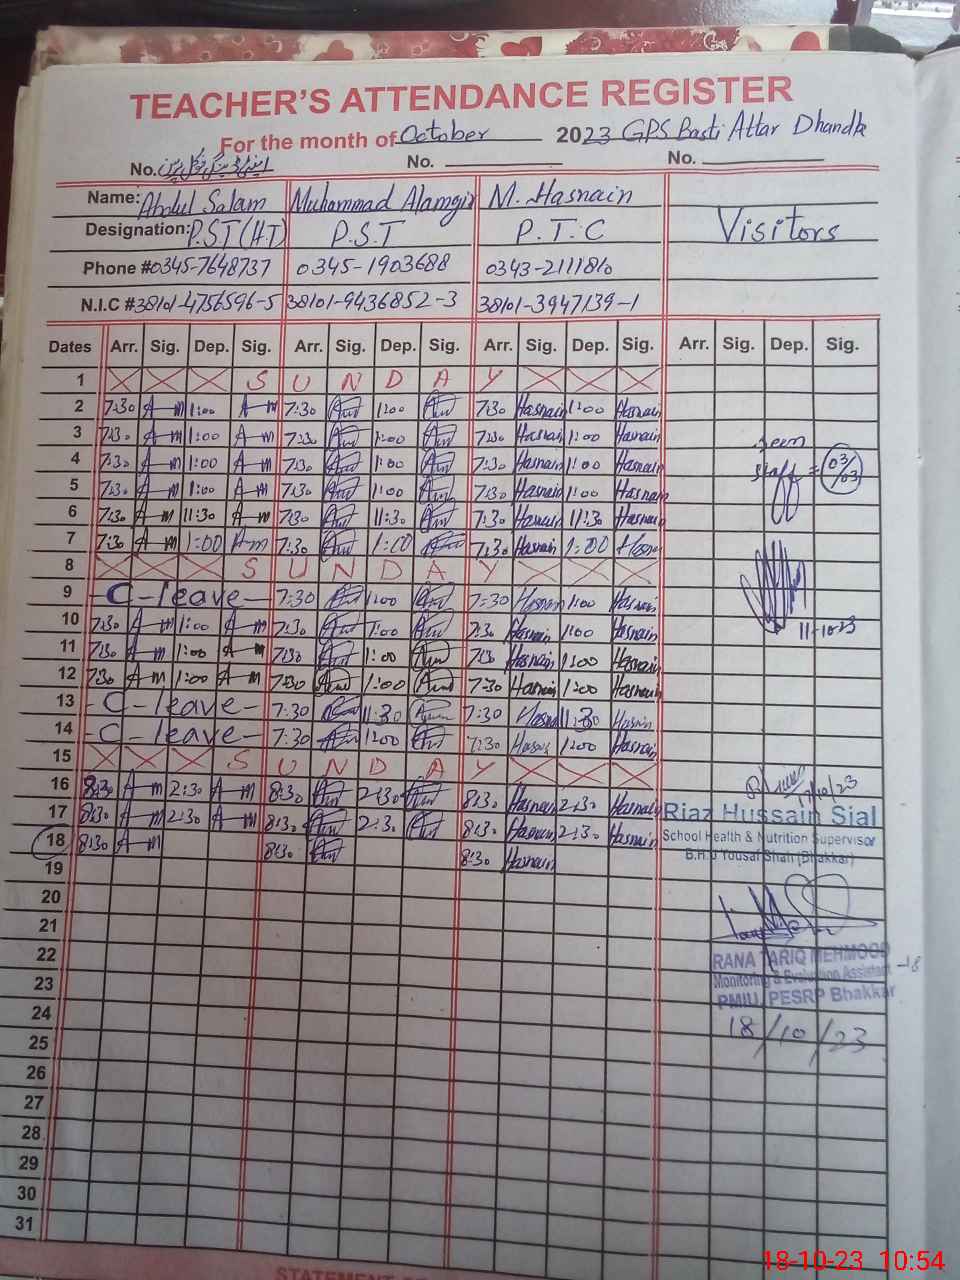 TEACHER'S ATTENDANCE REGISTER
For the month of October 2023 GPS Basti Attar Dhandla
No. No. No.
Name: Abdul Salam Muhammad Alamgir M. Hasnain
Designation: P.S.T (H.T) P.S.T P.T.C Visitors
Phone # 0345-7648737 0345-1903688 0343-2111810
N.I.C # 38101-4756596-5 38101-9436852-3 38101-3947139-1
Dates Arr. Sig. Dep. Sig. Arr. Sig. Dep. Sig. Arr. Sig. Dep. Sig. Arr. Sig. Dep. Sig.
1 S U N D A Y
2 7:30 A-m 1:00 A-m 7:30 1:00 7:30 Hasnain 1:00 Hasnain
3 7:30 A-m 1:00 A-m 7:30 1:00 7:30 Hasnain 1:00 Hasnain seen
4 7:30 A-m 1:00 A-m 7:30 1:00 7:30 Hasnain 1:00 Hasnain staff = 03/03
5 7:30 A-m 1:00 A-m 7:30 1:00 7:30 Hasnain 1:00 Hasnain
6 7:30 A-m 11:30 A-m 7:30 11:30 7:30 Hasnain 11:30 Hasnain
7 7:30 A-m 1:00 A-m 7:30 1:00 7:30 Hasnain 1:00 Hasnain
8 S U N D A Y
9 -C-leave- 7:30 1:00 7:30 Hasnain 1:00 Hasnain
10 7:30 A-m 1:00 A-m 7:30 1:00 7:30 Hasnain 1:00 Hasnain 11-10-23
11 7:30 A-m 1:00 A-m 7:30 1:00 7:30 Hasnain 1:00 Hasnain
12 7:30 A-m 1:00 A-m 7:30 1:00 7:30 Hasnain 1:00 Hasnain
13 -C-leave- 7:30 11:30 7:30 Hasnain 11:30 Hasnain
14 -C-leave- 7:30 1:00 7:30 Hasnain 1:00 Hasnain
15 S U N D A Y
16 8:30 A-m 2:30 A-m 8:30 2:30 8:30 Hasnain 2:30 Hasnain 17/10/23
17 8:30 A-m 2:30 A-m 8:30 2:30 8:30 Hasnain 2:30 Hasnain Riaz Hussain Sial
18 8:30 A-m 8:30 8:30 Hasnain School Health & Nutrition Supervisor
B.H.U Yousaf Shah (Bhakkar)
19
20
21
22 RANA TARIQ MEHMOOD
23 Monitoring & Evaluation Assistant -18
PMIU, PESRP Bhakkar
24 18/10/23
25
26
27
28
29
30
31
18-10-23 10:54